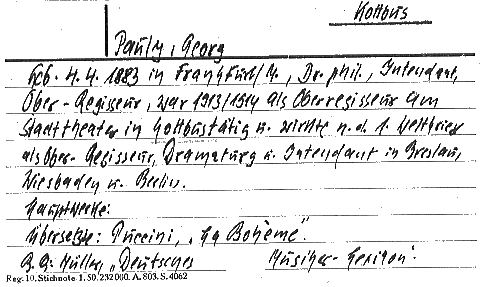 Kottbus
Pauly, Georg
Geb. 4.4.1883 in Frankfurt/M., Dr. phil., Intendant,
Ober-Regisseur, war 1913/1914 als Oberregisseur am
Stadttheater in Cottbus tätig u. wirkte n. d. 1. Weltkrieg
als Ober-Regisseur, Dramaturg u. Intendant in Breslau,
Wiesbaden u. Berlin.
Hauptwerke:
Übersetzte: Puccini, „La Bohème".
Müller, „Deutsches Musiker-Lexikon".
Reg. 10. Stichnote 1. 50. 232000. A. 803. S. 4062